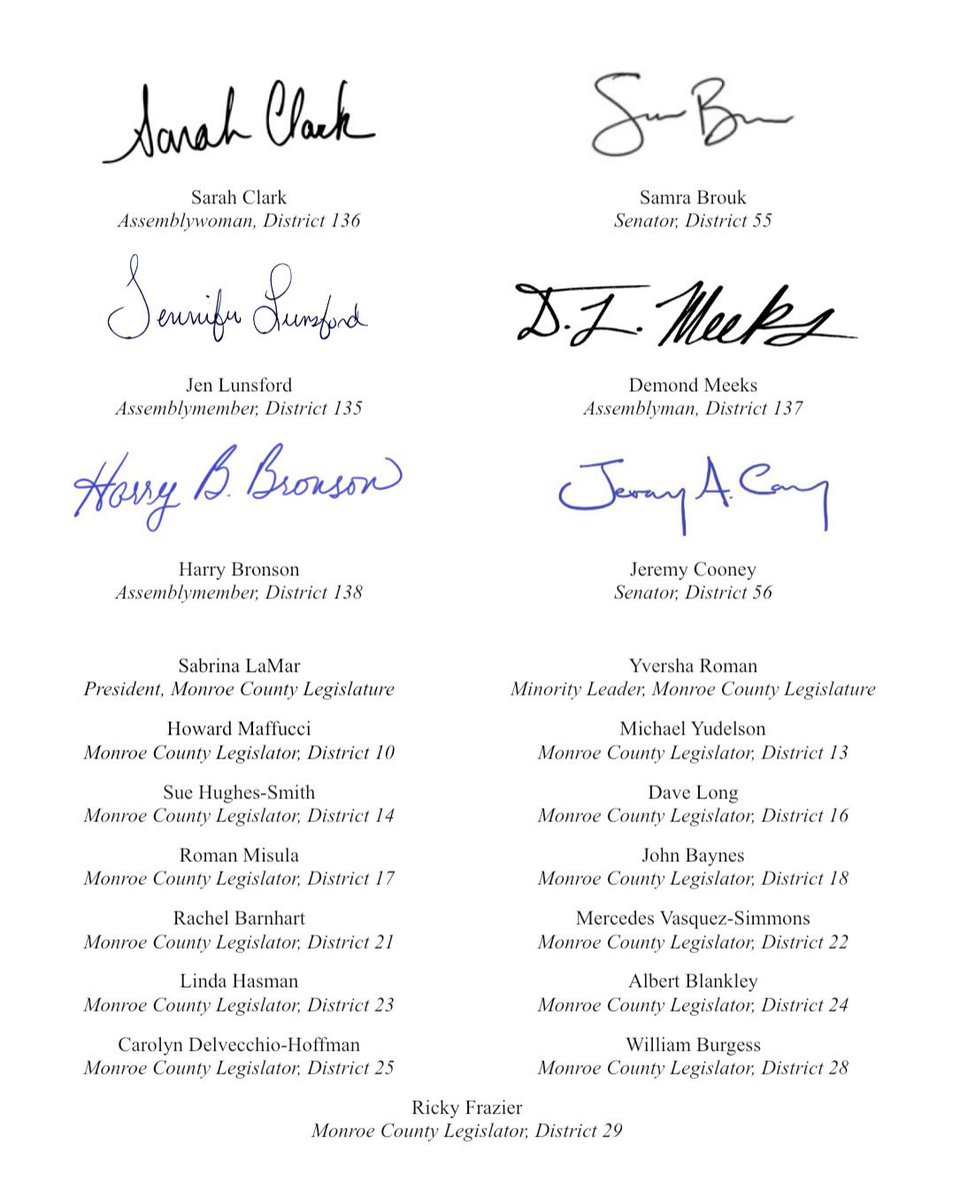 Sarah Clark
Sarah Clark
Assemblywoman, District 136
Samra Brouk
Senator, District 55
Jennifer Lunsford
Jen Lunsford
Assemblymember, District 135
D. L. Meeks
Demond Meeks
Assemblyman, District 137
Harry B. Bronson
Harry Bronson
Assemblymember, District 138
Jeremy A. Cooney
Jeremy Cooney
Senator, District 56
Sabrina LaMar
President, Monroe County Legislature
Yversha Roman
Minority Leader, Monroe County Legislature
Howard Maffucci
Monroe County Legislator, District 10
Michael Yudelson
Monroe County Legislator, District 13
Sue Hughes-Smith
Monroe County Legislator, District 14
Dave Long
Monroe County Legislator, District 16
Roman Misula
Monroe County Legislator, District 17
John Baynes
Monroe County Legislator, District 18
Rachel Barnhart
Monroe County Legislator, District 21
Mercedes Vasquez-Simmons
Monroe County Legislator, District 22
Linda Hasman
Monroe County Legislator, District 23
Albert Blankley
Monroe County Legislator, District 24
Carolyn Delvecchio-Hoffman
Monroe County Legislator, District 25
William Burgess
Monroe County Legislator, District 28
Ricky Frazier
Monroe County Legislator, District 29